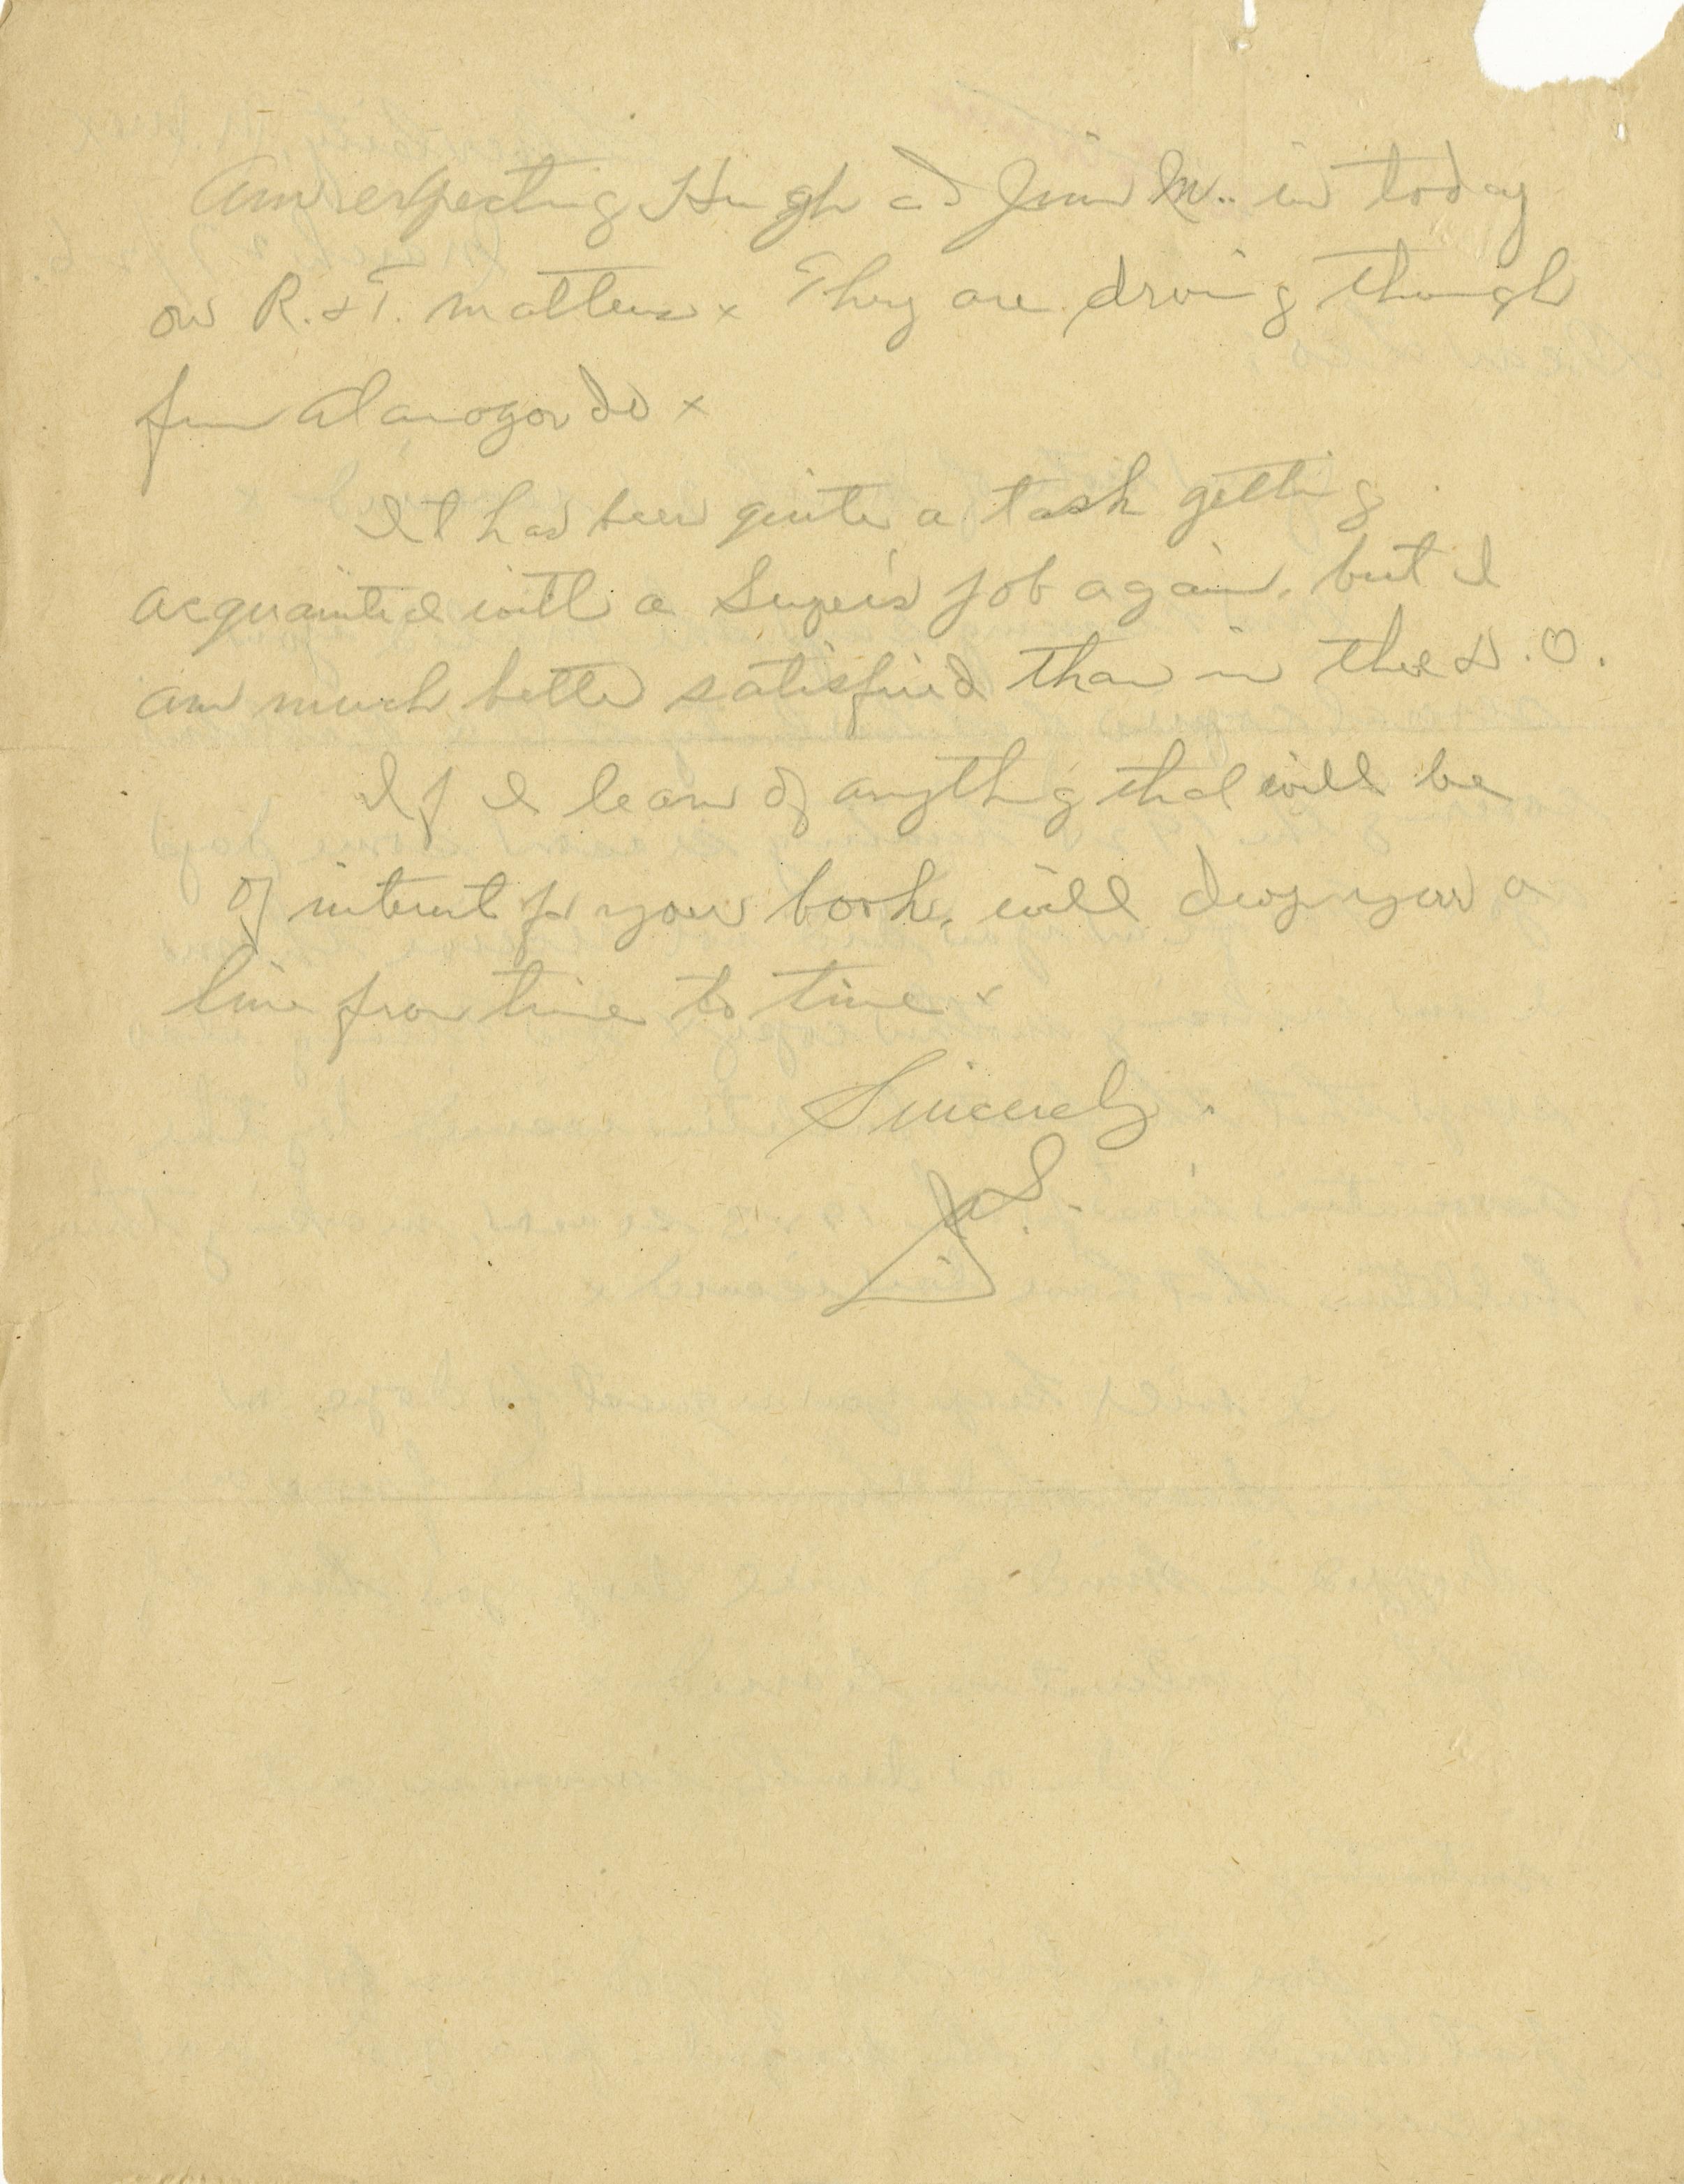 Am expecting Hugh and Jim M. in today
on R. & T. matters x They are driving through
from Alamogordo x
It has been quite a task getting
acquainted with a Super's job again, but I
am much better satisfied than in the D.O.
If I learn of anything that will be
of interest for your book, will drop you a
line from time to time x
Sincerely.